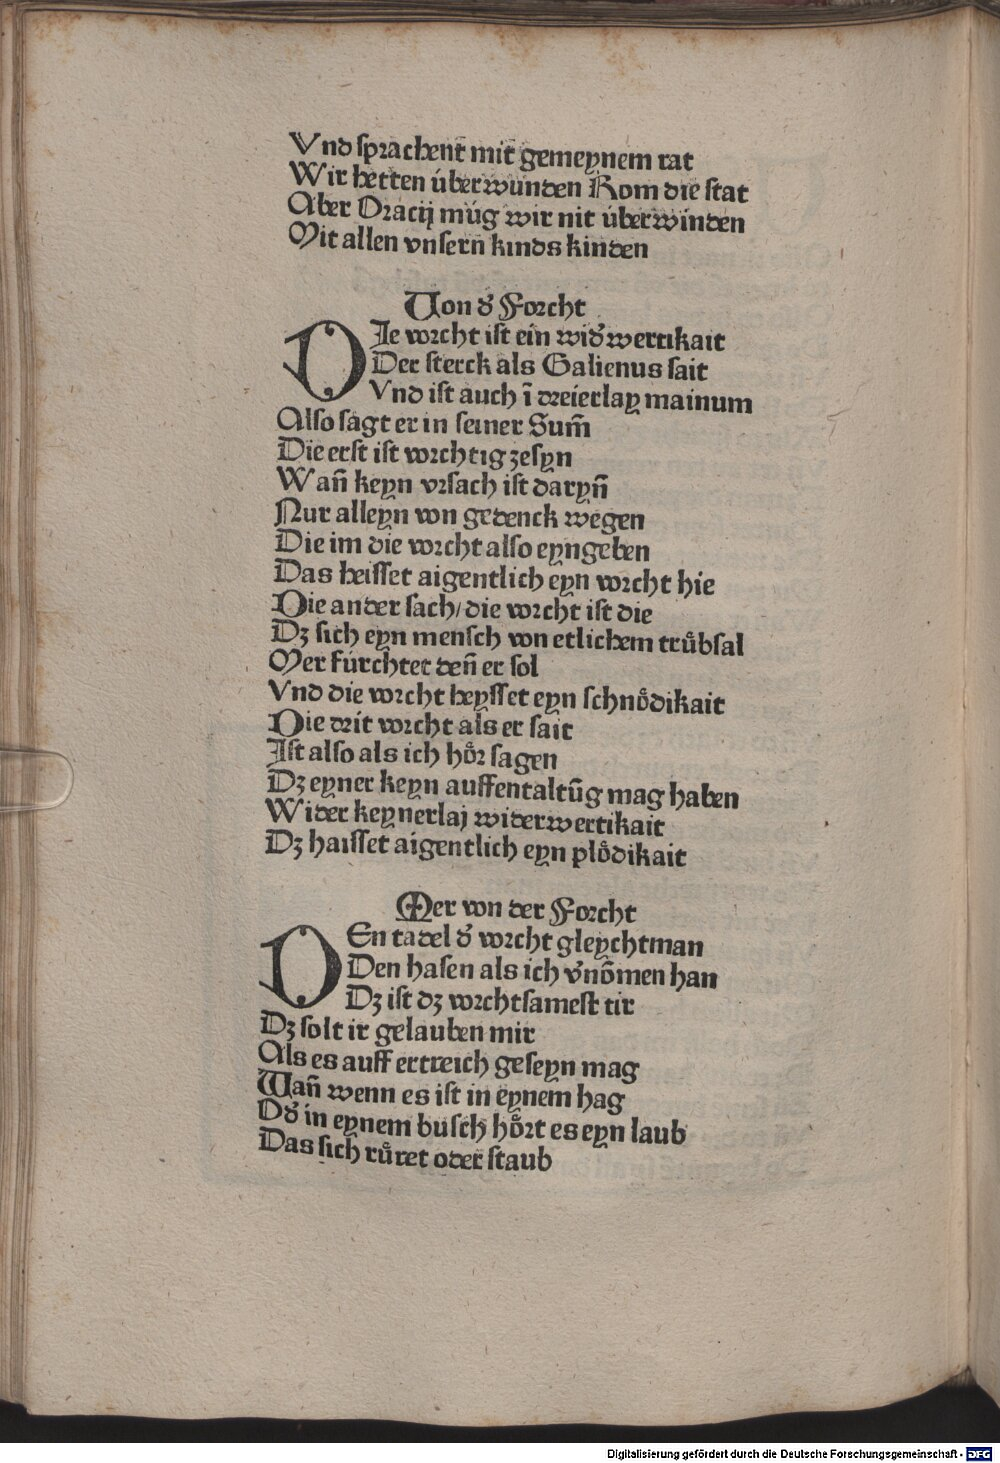 Vnd sprachent mit gemeynem rat
Wir hetten überwunden Rom die stat
Aber Oracij müg wir nit überwinden
Mit allen vnsern̄ kinds kinden
Von d͛ Forcht
DIe vorcht ist ein wid͛wertikait
Der sterck als Galienus sait
Vnd ist auch ī dreierlay mainum
Also sagt er in seiner Sum̄
Die erst ist vorchtig zesyn
Wan̄ keyn vrsach ist daryn̄
Nur alleyn von gedenck wegen
Die im die vorcht also eyngeben
Das heisset aigentlich eyn vorcht hie
Die ander sach/ die vorcht ist die
Dz sich eyn mensch von etlichem truͤbsal
Mer fürchtet den̄ er sol
Vnd die vorcht heysset eyn schnoͤdikait
Die drit vorcht als er sait
Ist also als ich hoͤr sagen
Dz eyner keyn auffentaltūg mag haben
Wider keynerlaj widerwertikait
Dz haisset aigentlich eyn ploͤdikait
Mer von der Forcht
DEn tadel d͛ vorcht gleychtman
Den hasen als ich v͛nōmen han
Dz ist dz vorchtsamest tir
Dz solt ir gelauben mir
Als es auff ertreich geseyn mag
Wan̄ wenn es ist in eynem hag
Od͛ in eynem busch hoͤrt es eyn laub
Das sich ruͤret oder staub
Digitalisierung gefördert durch die Deutsche Forschungsgemeinschaft - DFG